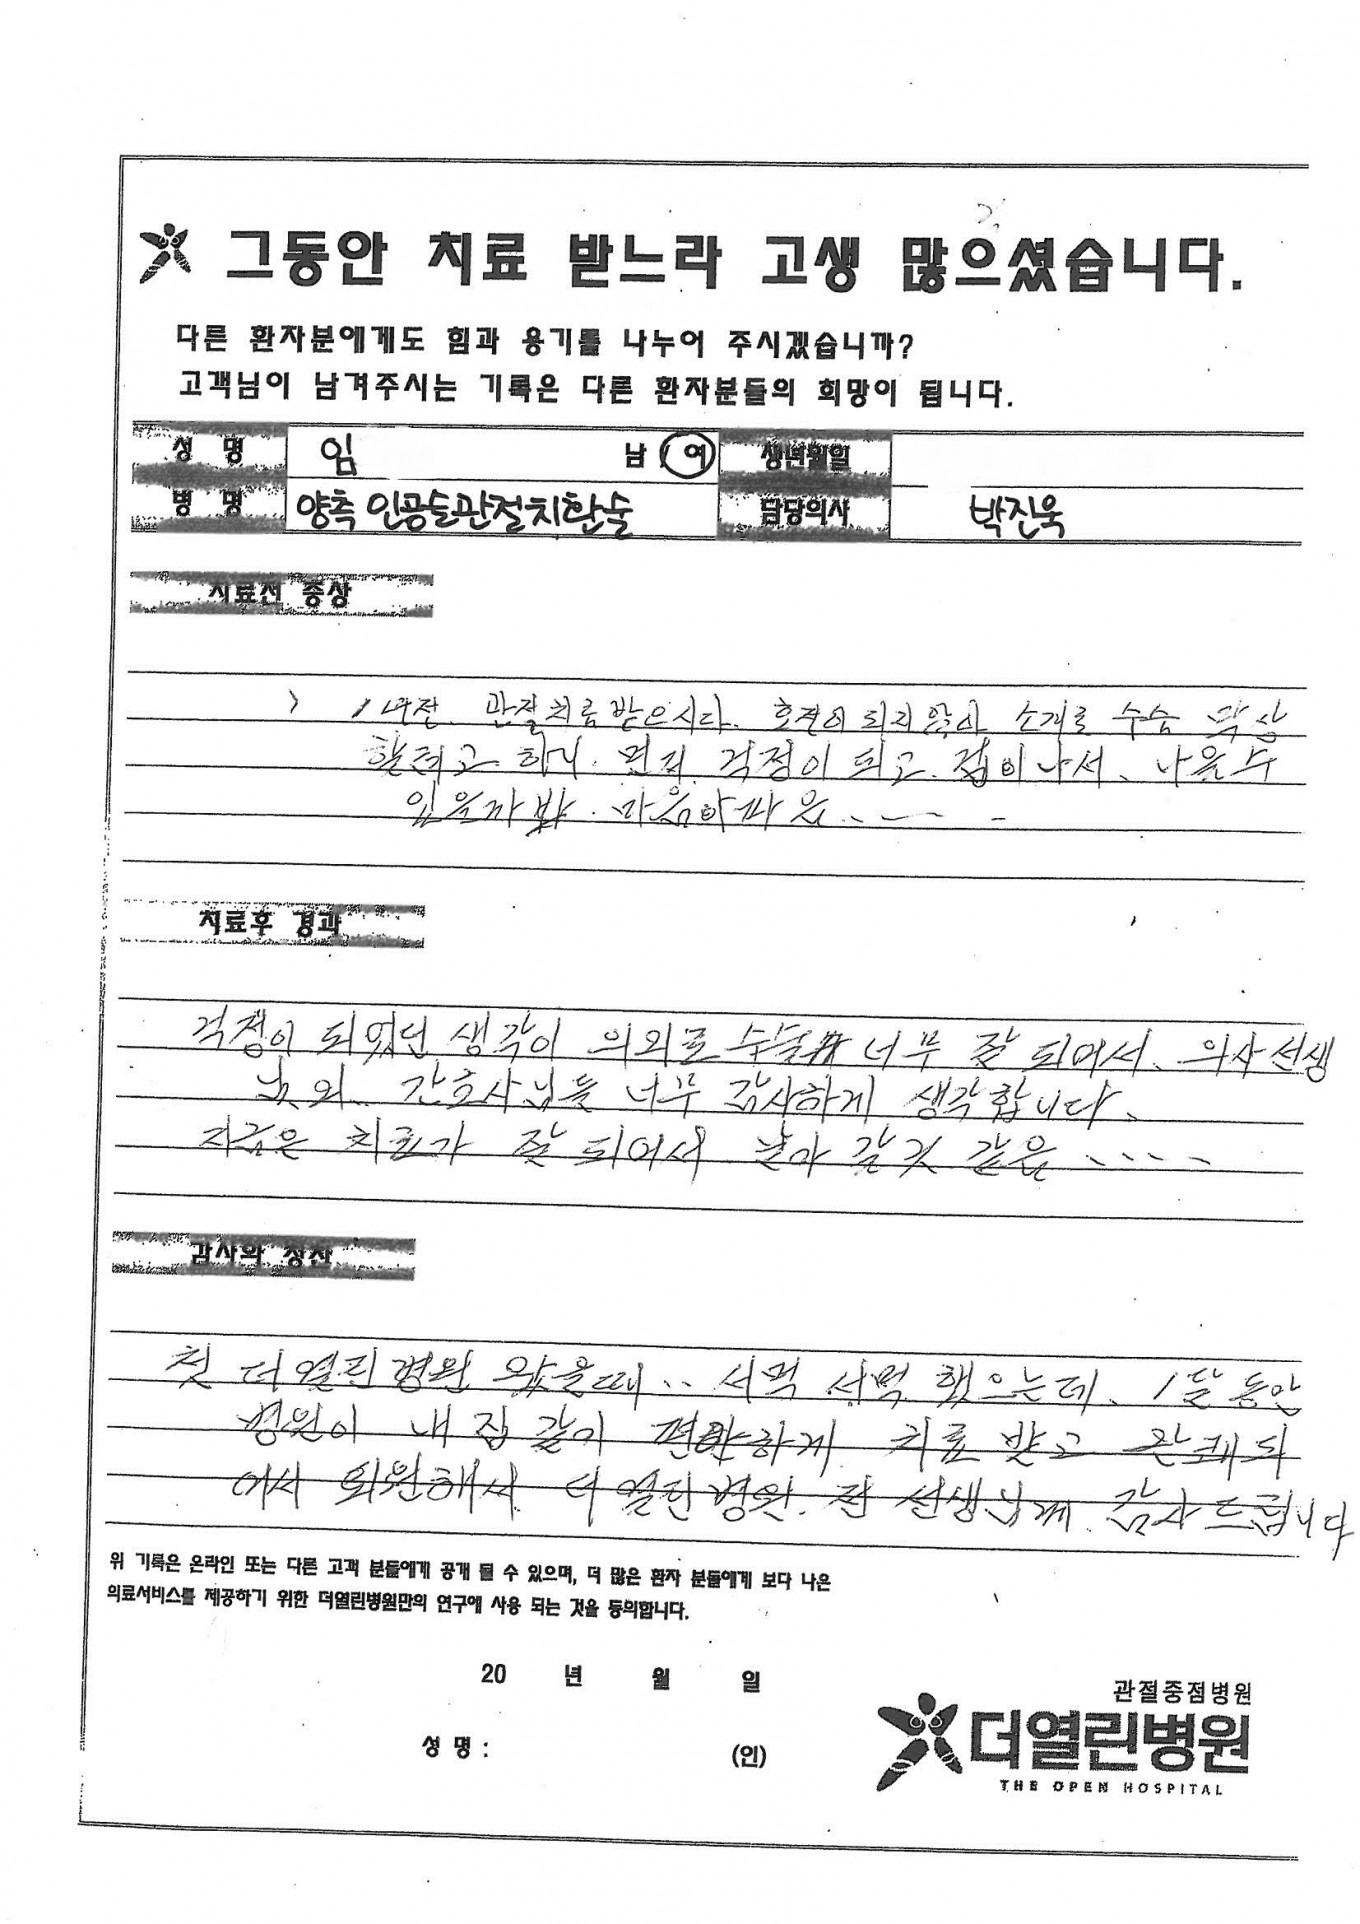 그동안 치료 받느라 고생 많으셨습니다.
다른 환자분에게도 힘과 용기를 나누어 주시겠습니까?
고객님이 남겨주시는 기록은 다른 환자분들의 희망이 됩니다.
성 명 임 남 / 여 생년월일
병 명 양측 인공슬관절치환술 담당의사 박진욱
치료전 증상
1년전 관절치료 받으시다. 호전이 되지 않아 소개로 수술 막상
할려고 하니. 먼저 걱정이 되고. 겁이나서. 나을수
있을까 마음아파음....
치료후 경과
걱정이 되었던 생각이 의외로 수술 너무 잘 되어서. 의사선생
님외. 간호사님들 너무 감사하게 생각합니다.
지금은 치료가 잘 되어서 날아 갈것 같음....
감사와 칭찬
첫 더열린병원 왔을때.. 서먹 서먹 했으는데. 1달 동안
병원이 내 집 같이 편안하게 치료 받고 완쾌되
어서 퇴원해서 더 열린병원. 전 선생님께. 감사드립니다
위 기록은 온라인 또는 다른 고객 분들에게 공개 될 수 있으며, 더 많은 환자 분들에게 보다 나은
의료서비스를 제공하기 위한 더열린병원만의 연구에 사용 되는 것을 동의합니다.
20 년 월 일
성 명 : (인)
관절중점병원
더열린병원
THE OPEN HOSPITAL